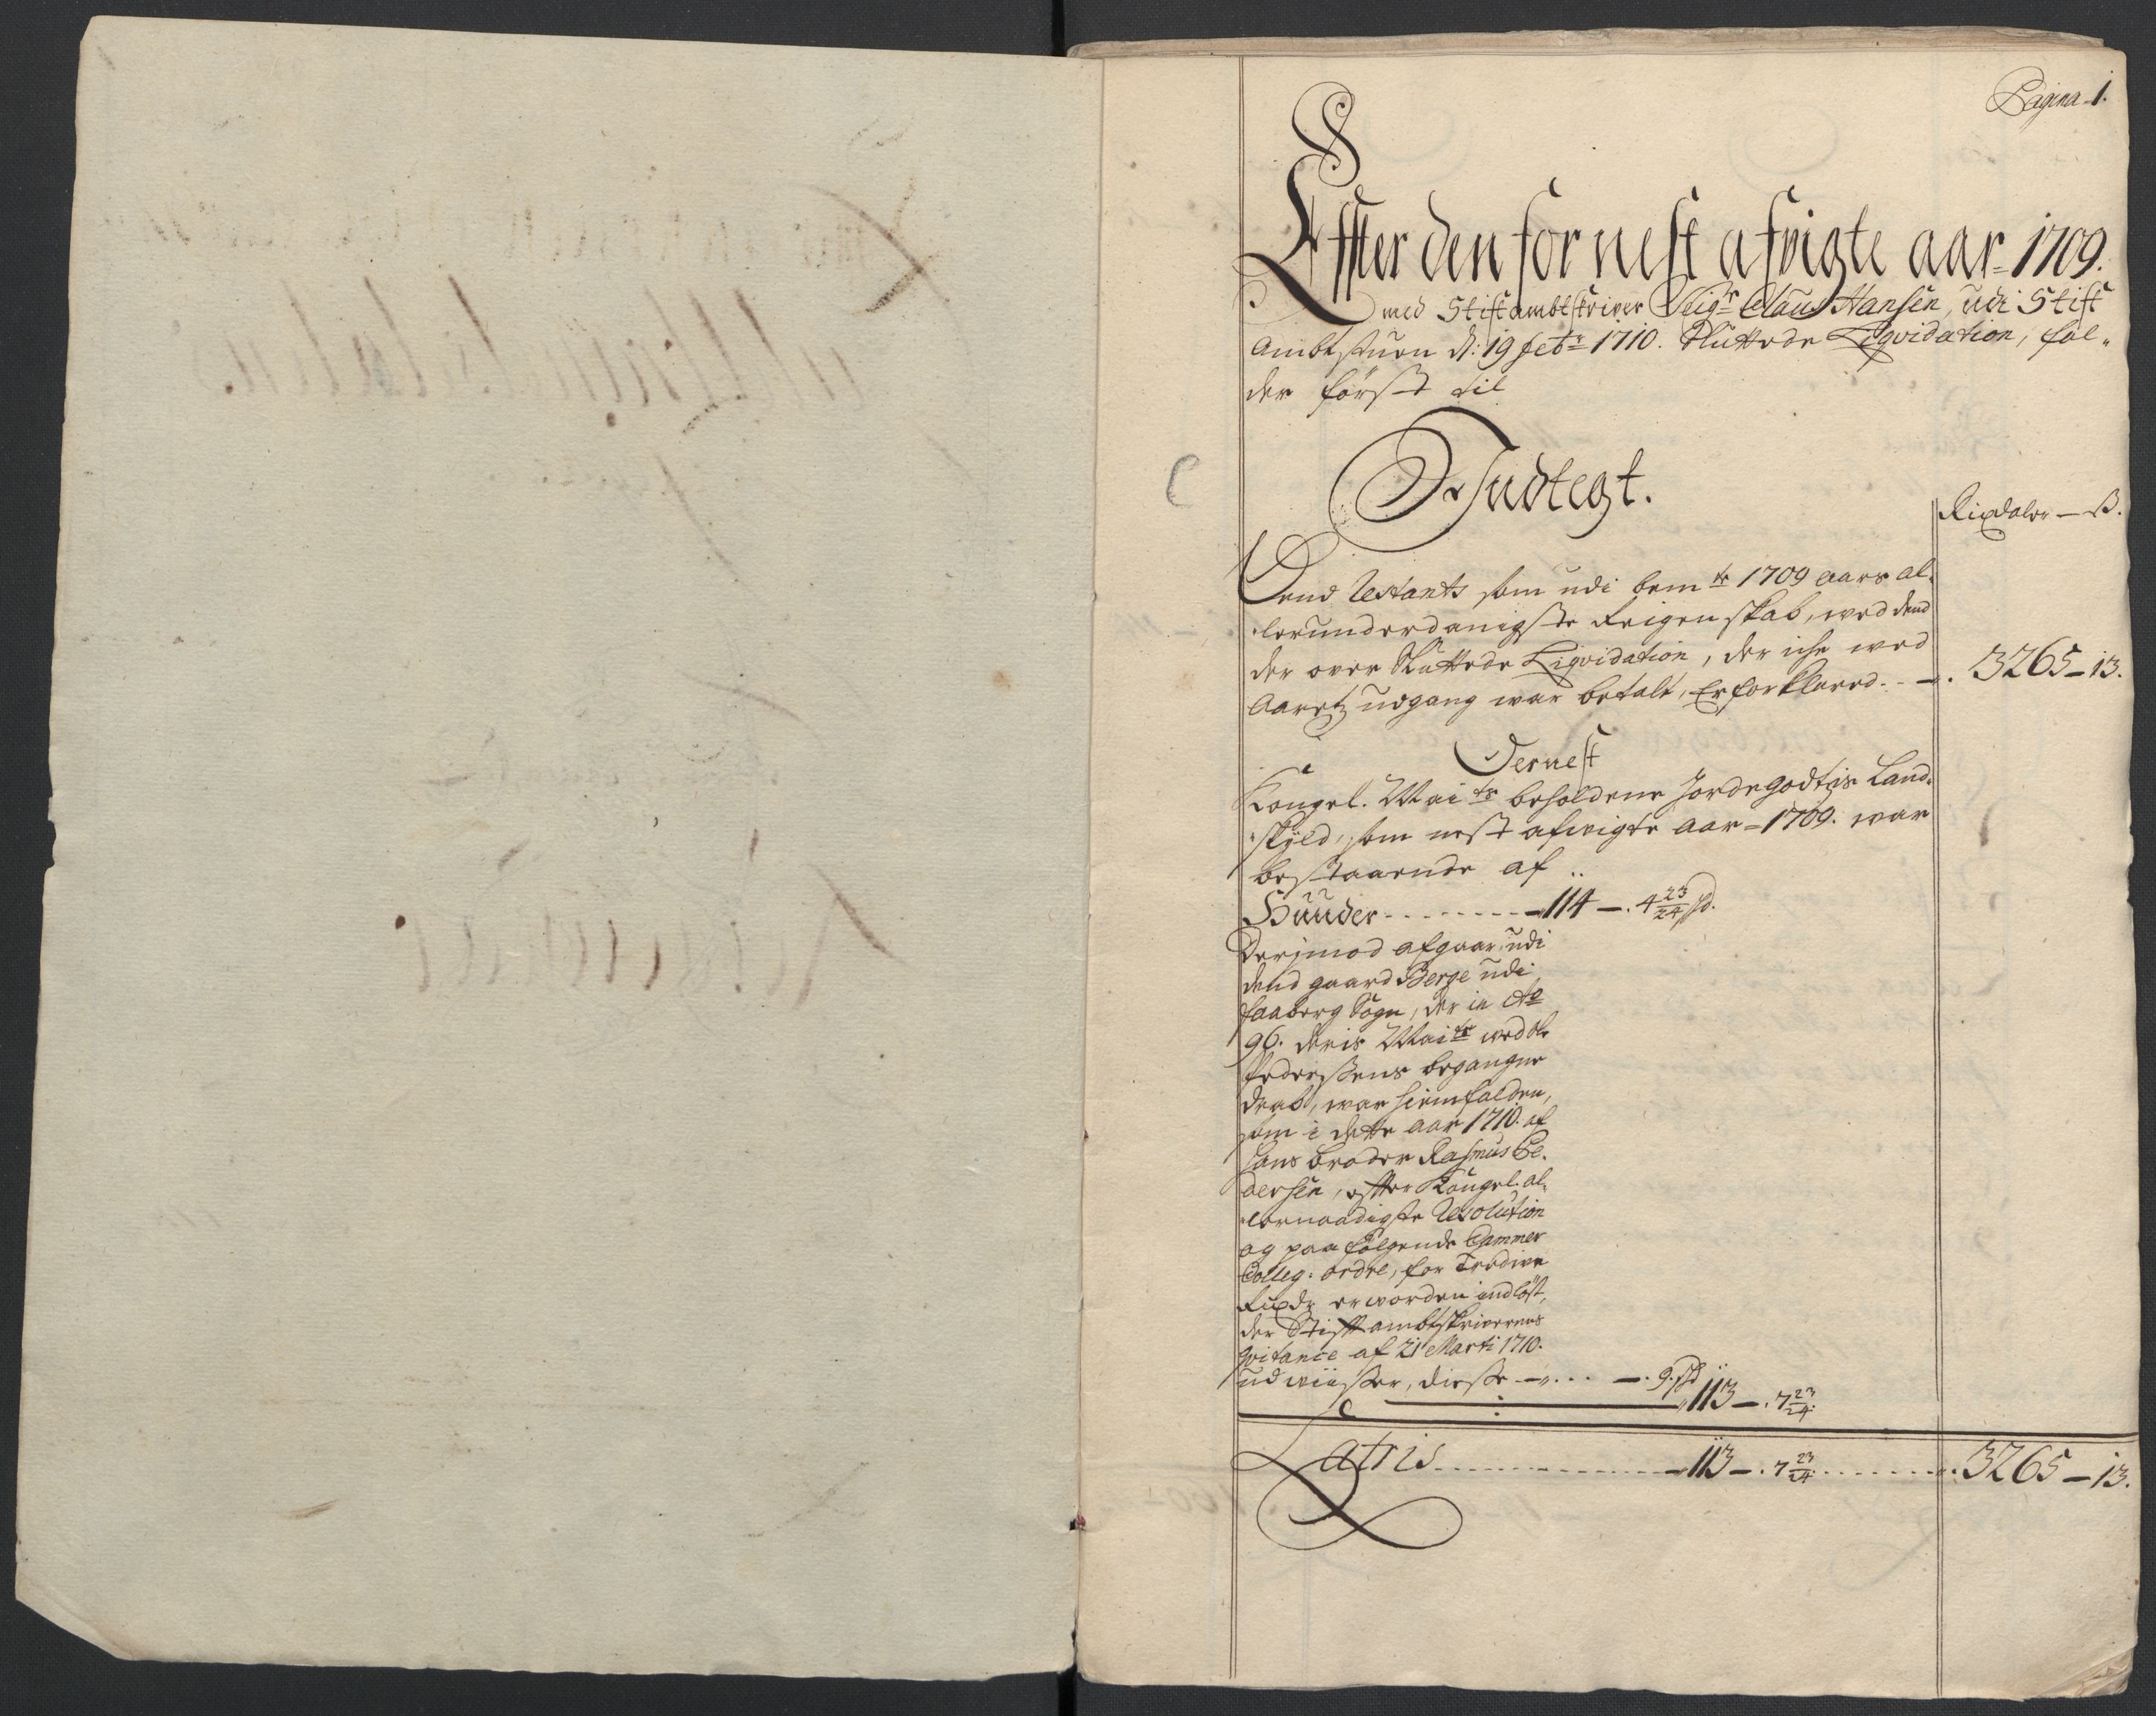 Pagina 1.
Effter den for nest afvigte aar 1709.
med Stiftambtskriver Seigr Claus Hansen, udi Stift
Ambtstuen d: 19 febr 1710. Sluttede Liqvidation, fal-
der først til
Indtegt.
Rixdaler — ß.
Dend Restants som udi bemte 1709 aars al-
lerunderdanigste Reigenskab, ved dend
der over Sluttede Liqvidation, der iche ved
Aaretz udgang war betalt, Er forklared - - 3265 - 13.
Dernest
Kongel. Maits beholdene Jordegodtzis Land-
skyld, som nest afvigte Aar 1709. war
bestaaende af ..
Huuder - - - - - - - 114 - . 4 23/24 sd.
Derjmod afgaar udi
dend gaard Berge udi
faaberg Sogn, der in Ao
96. deris Maits ved Ole
Pedersens begangne
drab, war hiemfalden,
som i dette aar 1710. af
hans broder Rasmus Pe-
dersen, effter Kongel. al-
lernaadigste Resolution
og paafølgende Cammer
Colleg: ordre, for Tredive
Rixdr er worden indløst,
der Stiftambtskriverens
Qvitance af 21 Marti 1710.
udwiisser, disse - . . . - . 9. sd
113 - . 7 23/24.
Latris - - - - - - - - 113 - . 7 23/24 - - - - - 3265 - 13.